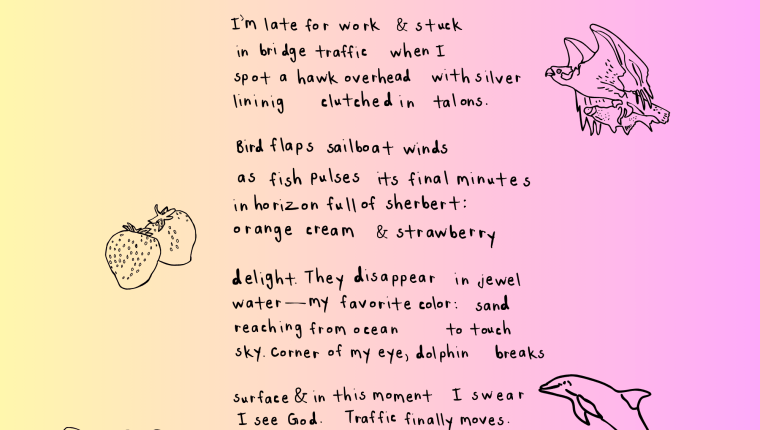 I'm late for work & stuck
in bridge traffic when I
spot a hawk overhead with silver
lininig clutched in talons.
Bird flaps sailboat winds
as fish pulses its final minutes
in horizon full of sherbert:
orange cream & strawberry
delight. They disappear in jewel
water—my favorite color: sand
reaching from ocean to touch
sky. Corner of my eye, dolphin breaks
surface & in this moment I swear
I see God. Traffic finally moves.